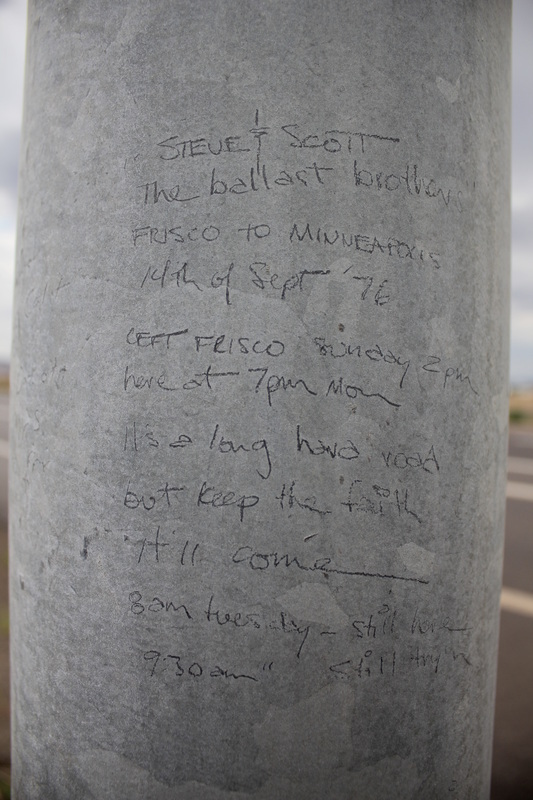 STEVE & SCOTT
The ballast brothers
FRISCO to MINNEAPOLIS
14th of Sept '76
LEFT FRISCO Sunday 2pm
here at 7pm Mon
It's a long hard road
but keep the faith
It'll come
8am tuesday - still here
9:30am " still tryin